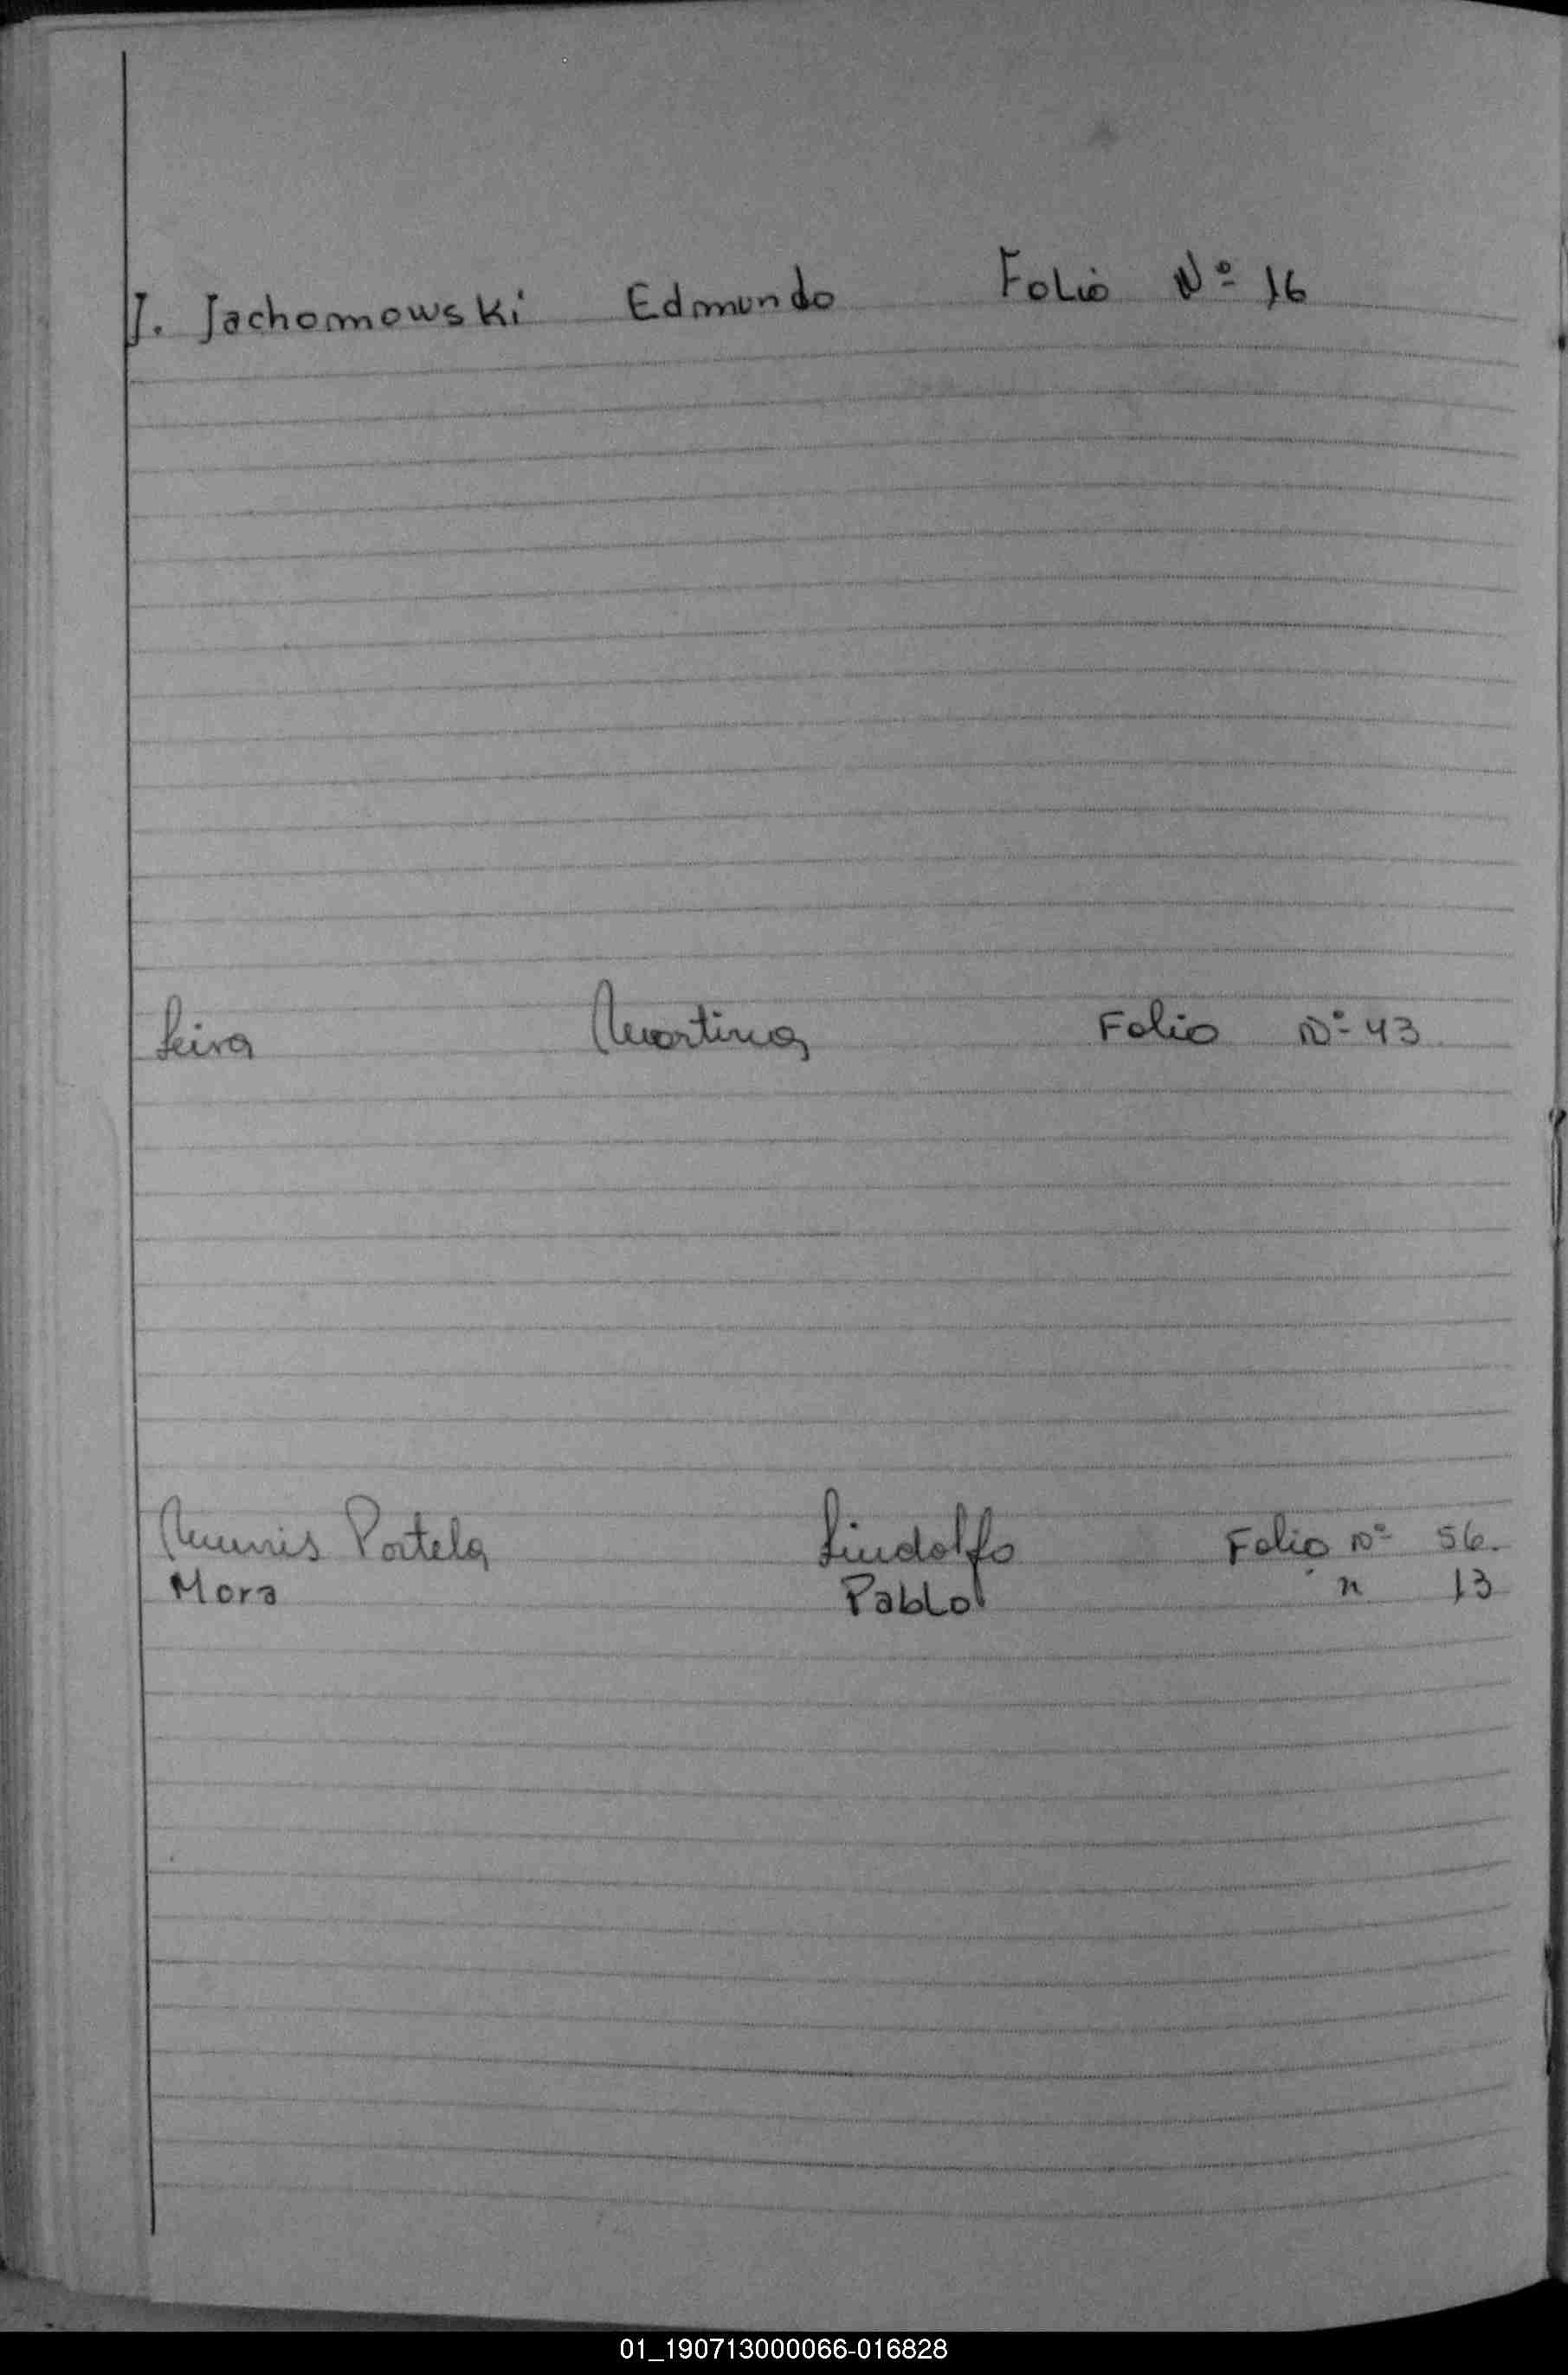 J. Jachomowski Edmundo Folio Nº 16
Leiva Martina Folio Nº 43
Munis Portela Lindolfo Folio Nº 56.
Mora Pablo " 13
01_190713000066-016828